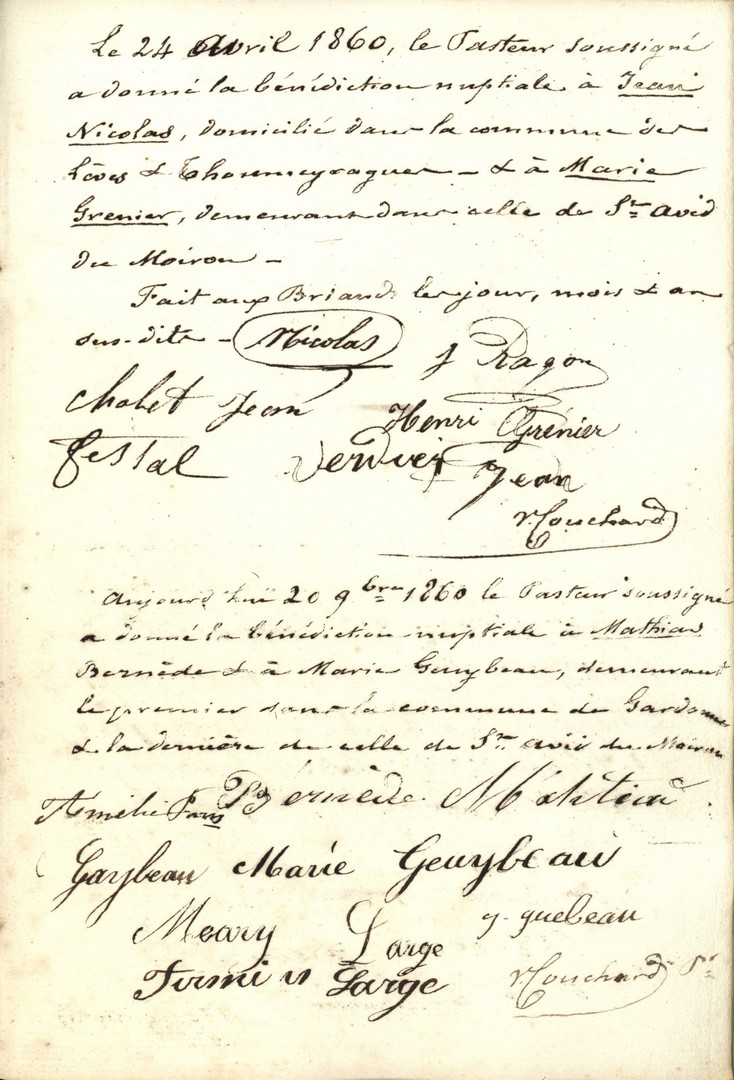 Le 24 Avril 1860, le Pasteur soussigné
a donné la bénédiction nuptiale à Jean
Nicolas, domicilié dans la commune des
Lèves & Thoumeyragues - & à Marie
Grenier, demeurant dans celle de St. Avid
du Moiron -
Fait aux Briands les jour, mois & an
sus-dits - Nicolas J Ragon
Cholet Jean Henri Grénier
festal Verdier Jean
r. Couchard
Aujourd'hui 20 9bre 1860 le Pasteur soussigné
a donné la bénédiction nuptiale à Mathias
Bernède & à Marie Geuybeau, demeurant
le premier dans la commune de Gardonne
& la dernière de celle de St. avit du Moiron
Amélie Bernède
Gaybeau Marie Geuybeau
Meary Large g. guebeau
Firmin Large r. Couchard Pr